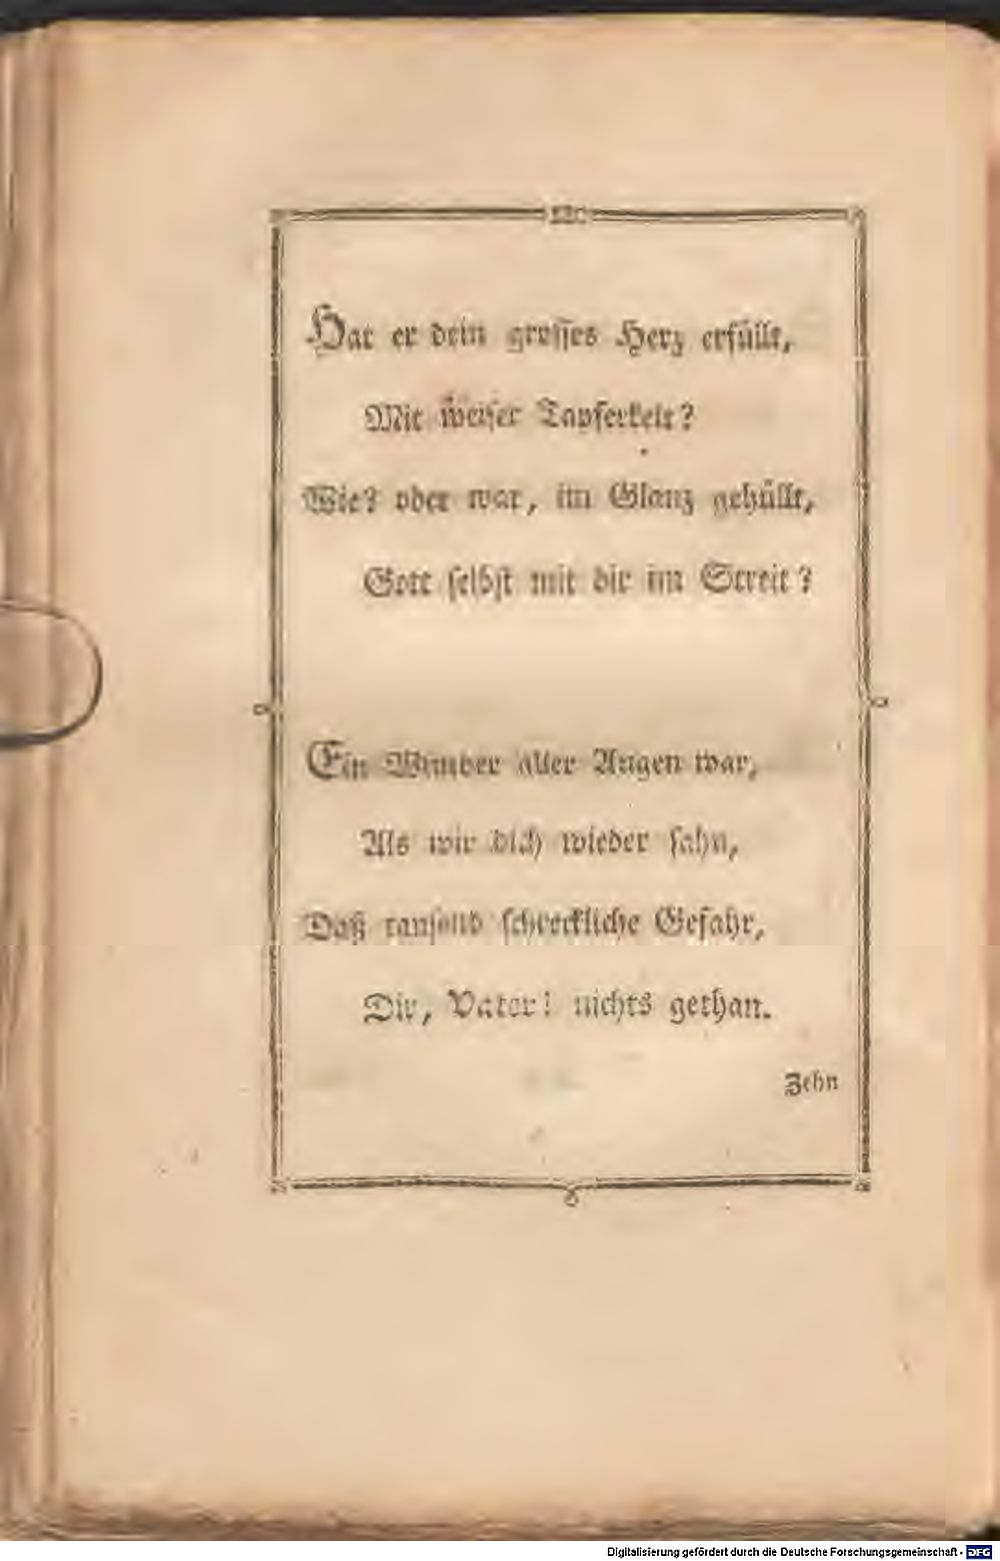 Hat er dein grosses Herz erfüllt,
Mit weiser Tapferkeit?
Wie? oder war, im Glanz gehüllt,
Gott selbst mit dir im Streit?
Ein Wunder aller Augen war,
Als wir dich wieder sahn,
Daß tausend schreckliche Gefahr,
Dir, Vater! nichts gethan.
Zehn
Digitalisierung gefördert durch die Deutsche Forschungsgemeinschaft - DFG